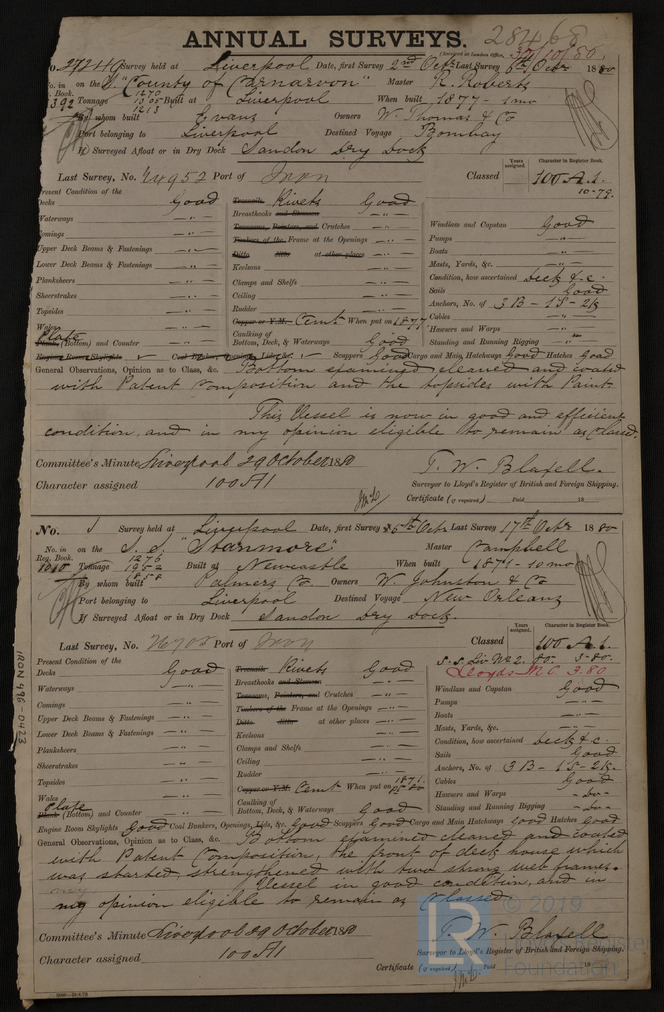 ANNUAL SURVEYS. 28468
(Received at London Office, 30/10/80
No. 27240 Survey held at Liverpool Date, first Survey 2nd Octr Last Survey 6th Octr 1880
No. in Reg. Book. on the S. "County of Carnarvon" Master R. Roberts
392 Tonnage 1270 1305 1213 Built at Liverpool When built 1877 - 1 mo
By whom built Evans Owners W. Thomas & Co
Port belonging to Liverpool Destined Voyage Bombay
If Surveyed Afloat or in Dry Dock Sandon Dry Dock
Last Survey, No. 24952 Port of Iron Classed Years assigned. Character in Register Book. 100 A.1. 10-79.
Present Condition of the
Decks Good
Waterways - " -
Comings - " -
Upper Deck Beams & Fastenings - " -
Lower Deck Beams & Fastenings - " -
Planksheers - " -
Sheerstrakes - " -
Topsides - " -
Wales - " -
Plate Plank (Bottom) and Counter - " -
Treenails Rivets Good
Breasthooks and Stemson - " -
Transoms, Pointers, and Crutches - " -
Timbers of the Frame at the Openings - " -
Ditto ditto at other places - " -
Keelsons - " -
Clamps and Shelfs - " -
Ceiling - " -
Rudder - " -
Copper or Y.M. Cemt When put on 1877
Caulking of Bottom, Deck, & Waterways Good
Windlass and Capstan Good
Pumps - " -
Boats - " -
Masts, Yards, &c. - " -
Condition, how ascertained Deck &c.
Sails Good
Anchors, No. of 3B - 1S - 2K
Cables - " -
Hawsers and Warps - " -
Standing and Running Rigging - " -
Engine Room Skylights Coal Bunkers, Openings, Lids, &c. Scuppers Good Cargo and Main Hatchways Good Hatches Good
General Observations, Opinion as to Class, &c. Bottom examined cleaned and coated
with Patent Composition and the topsides with Paint.
This Vessel is now in good and efficient
condition, and in my opinion eligible to remain as Classed.
Committee's Minute Liverpool 29 October 1880 T. W. Blafell.
Character assigned 100 A1 Surveyor to Lloyd's Register of British and Foreign Shipping.
Certificate (if required) Paid 18
No. Survey held at Liverpool Date, first Survey 5th Octr Last Survey 17th Octr 1880
No. in Reg. Book. on the S.S. "Stanmore" Master Campbell
1010 Tonnage 1276 1952 1858 Built at Newcastle When built 1871 - 10 mo
By whom built Palmers Co. Owners W Johnston & Co
Port belonging to Liverpool Destined Voyage New Orleans
If Surveyed Afloat or in Dry Dock Sandon Dry Dock.
Last Survey, No. 26702 Port of Iron Classed Years assigned. Character in Register Book. 100 A.1.
S.S. Liv No 2. 80. 3-80.
Lloyds M C 3.80
Present Condition of the
Decks Good
Waterways - " -
Comings - " -
Upper Deck Beams & Fastenings - " -
Lower Deck Beams & Fastenings - " -
Planksheers - " -
Sheerstrakes - " -
Topsides - " -
Wales - " -
Plate Plank (Bottom) and Counter - " -
Treenails Rivets Good
Breasthooks and Stemson - " -
Transoms, Pointers, and Crutches - " -
Timbers of the Frame at the Openings - " -
Ditto ditto at other places - " -
Keelsons - " -
Clamps and Shelfs - " -
Ceiling - " -
Rudder - " -
Copper or Y.M. Cemt When put on 1871.
Caulking of Bottom, Deck, & Waterways Good
Windlass and Capstan Good
Pumps - " -
Boats - " -
Masts, Yards, &c. - " -
Condition, how ascertained Deck &c.
Sails Good
Anchors, No. of 3B - 1S - 2K.
Cables Good
Hawsers and Warps - Do -
Standing and Running Rigging - Do -
Engine Room Skylights Good Coal Bunkers, Openings, Lids, &c. Good Scuppers Good Cargo and Main Hatchways Good Hatches Good
General Observations, Opinion as to Class, &c. Bottom examined cleaned and coated
with Patent Composition, the front of deck house which
was started, strengthened with two strong web frames.
Vessel in good condition, and in
my opinion eligible to remain as Classed
Committee's Minute Liverpool 29 October 1880 T. W. Blafell
Character assigned 100 A1 Surveyor to Lloyd's Register of British and Foreign Shipping.
Certificate (if required) Paid 18
IRON 496-0423
LR © 2019
Foundation